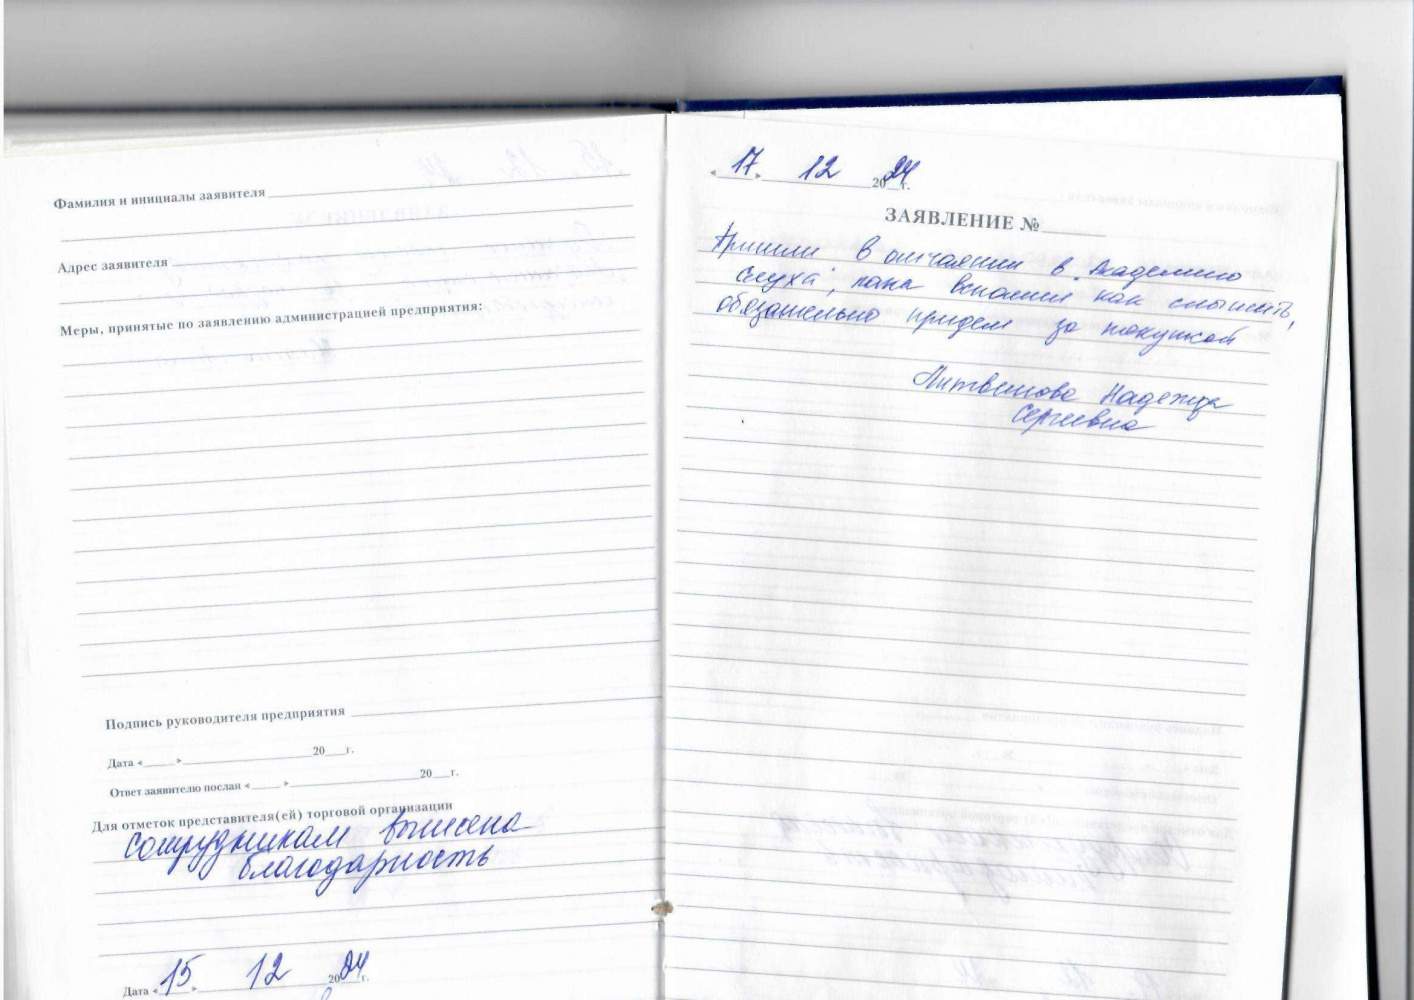 Фамилия и инициалы заявителя
Адрес заявителя
Меры, принятые по заявлению администрацией предприятия:
Подпись руководителя предприятия
Дата « » 20 г.
Ответ заявителю послан « » 20 г.
Для отметок представителя(ей) торговой организации
Сотрудникам вынесена
благодарность
Дата «15» 12 2024 г.
«17» 12 2024 г.
ЗАЯВЛЕНИЕ №
Пришли в отчаянии в "Академию
слуха", папа вспомнил как слышать,
обязательно придем за покупкой
Литвинова Надежда
Сергеевна